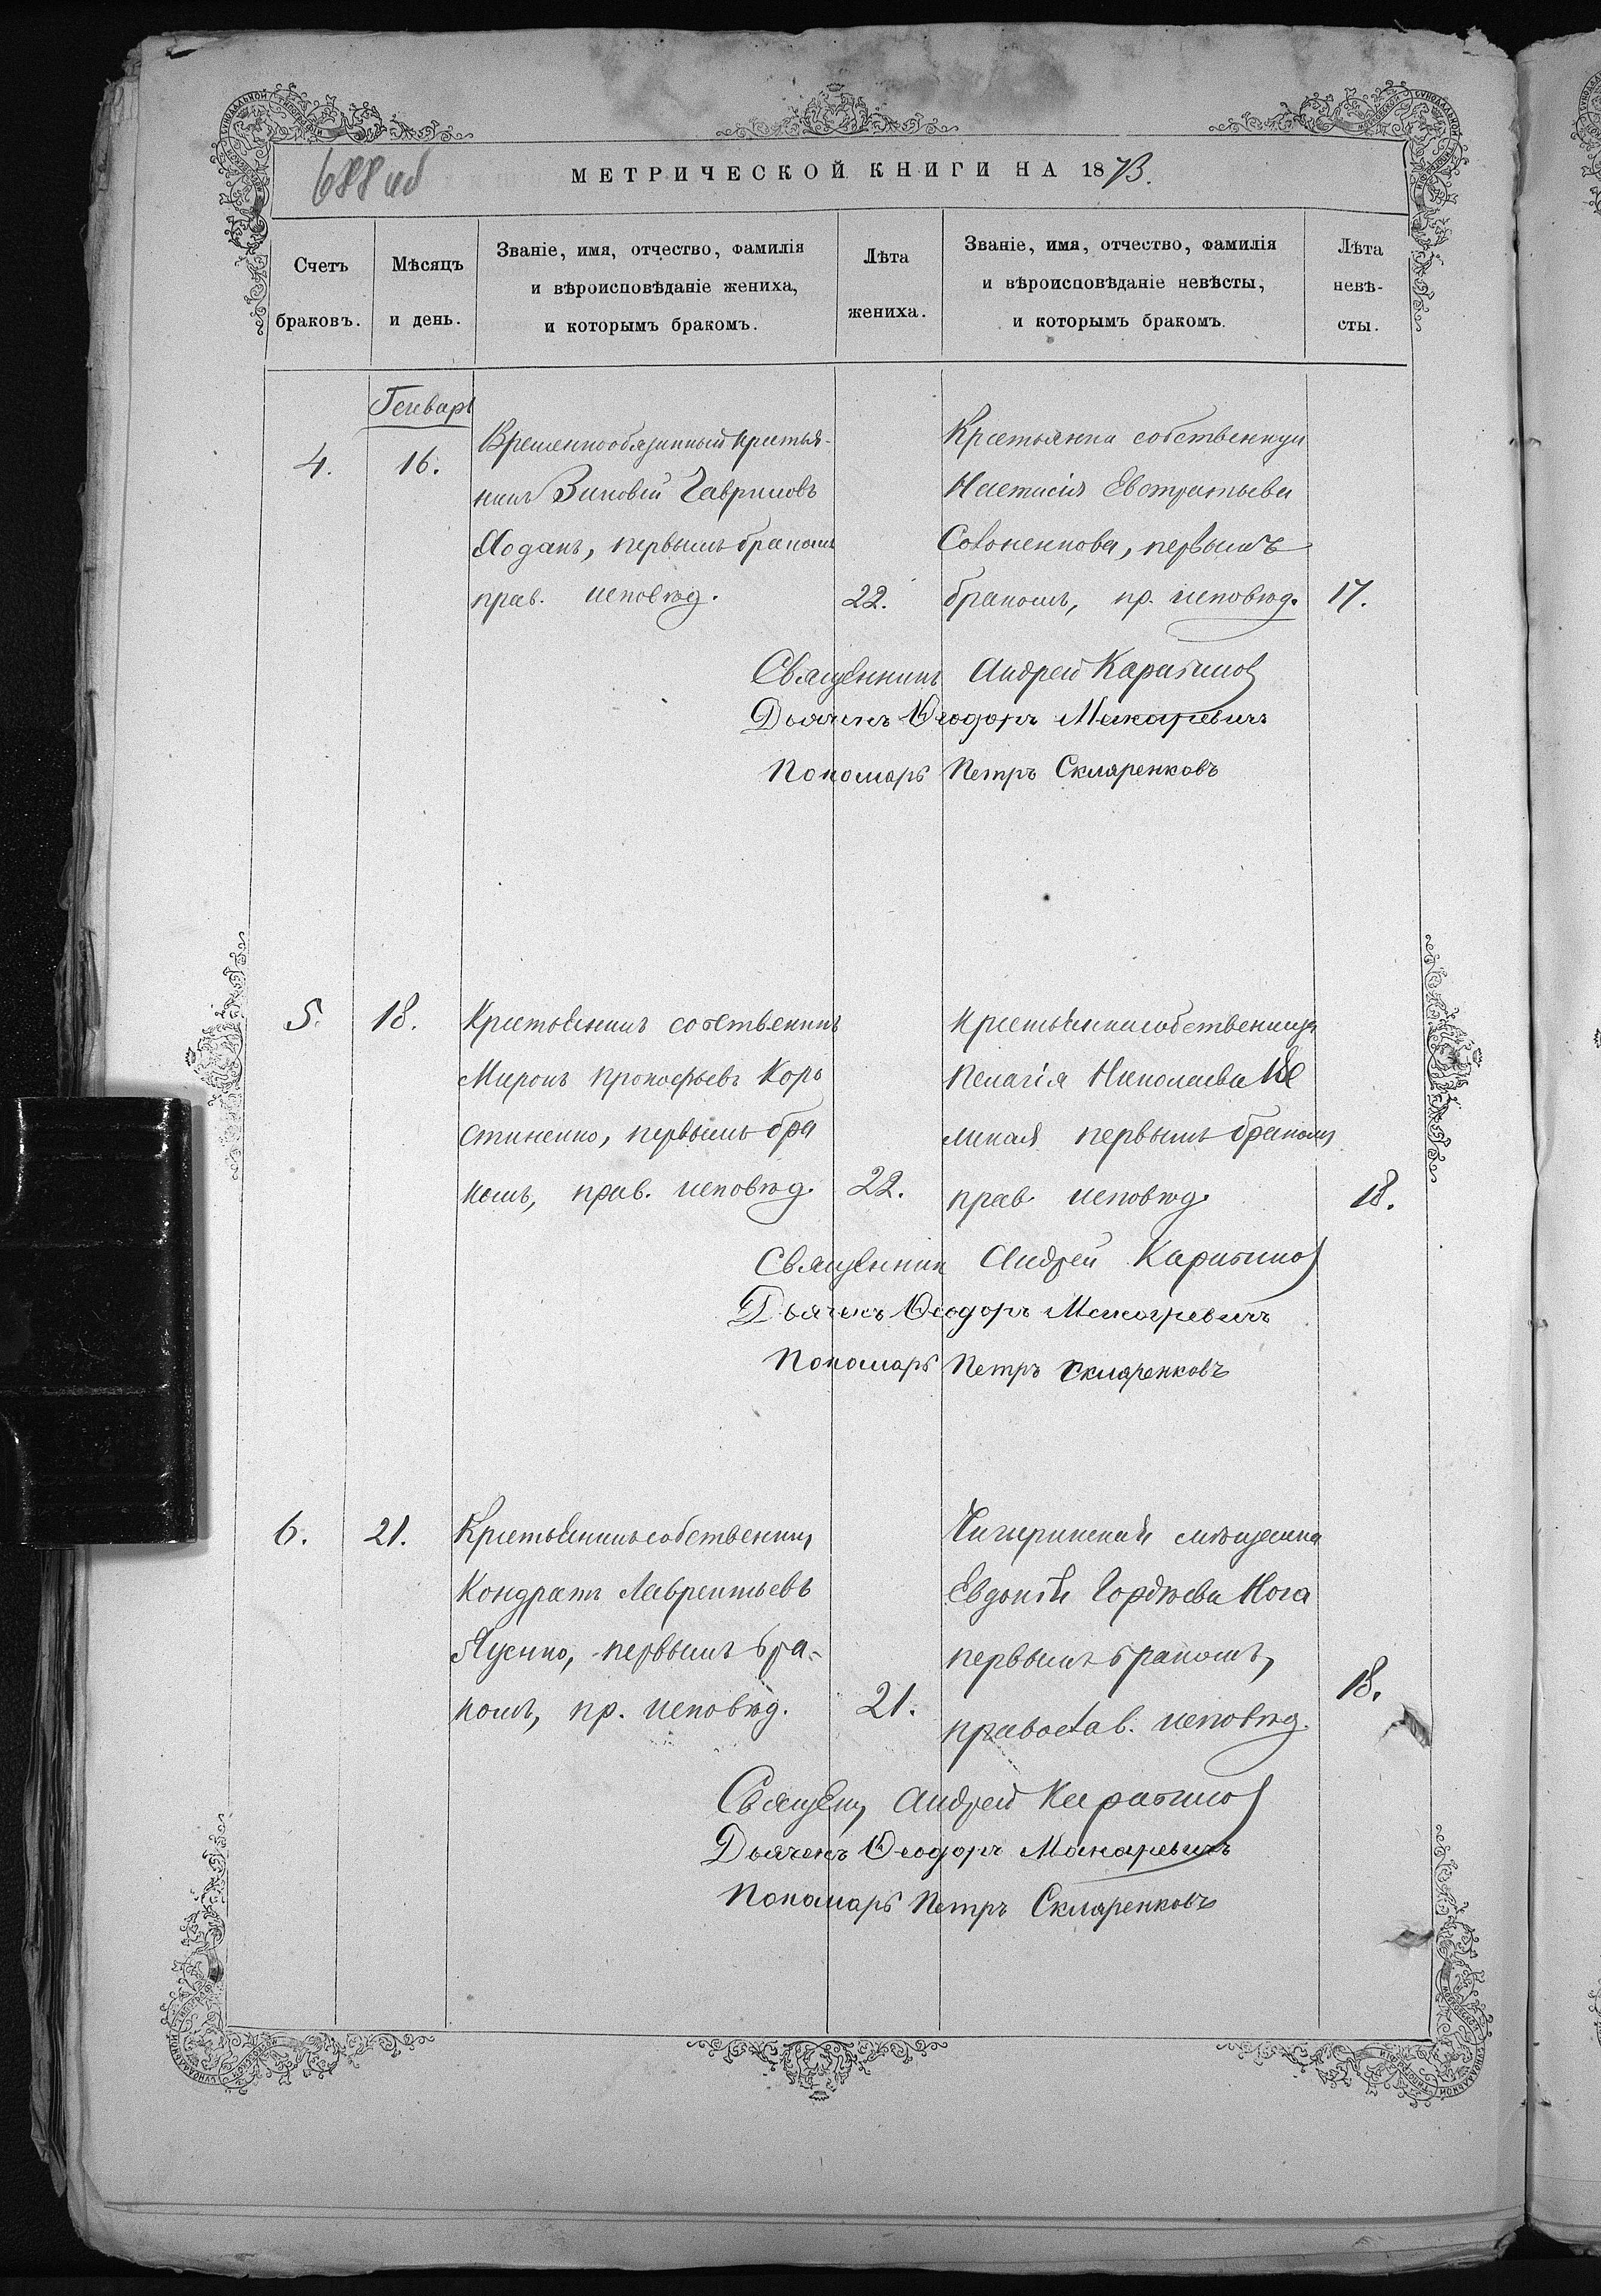 688 об
МЕТРИЧЕСКОЙ КНИГИ НА 1873.
Счетъ браковъ.
Мѣсяцъ и день.
Званіе, имя, отчество, фамилія
и вѣроисповѣданіе жениха,
и которымъ бракомъ.
Лѣта жениха.
Званіе, имя, отчество, фамилія
и вѣроисповѣданіе невѣсты,
и которымъ бракомъ.
Лѣта невѣ-
сты.
Генварь
4.
16.
Временнообязанный крестья-
нинъ Зиновій Гавриловъ
Ходакъ, первымъ бракомъ
прав. исповѣд.
22.
Крестьянка собственица
Настасія Евстратьева
первымъ
бракомъ, пр. исповѣд.
17.
Священникъ Андрей
Дьячекъ Ѳеодоръ Макаревичъ
Пономарь Петръ Скляренковъ
5.
18.
Крестьянинъ собственикъ
Миронъ Прокофьевъ Коръ
стиненко, первымъ бра
комъ, прав. исповѣд.
22.
Крестьянка собственица
Пелагія Николаева
первымъ бракомъ
прав. исповѣд.
18.
Священник Андрей
Дьячекъ Ѳеодоръ Макаревичъ
Пономарь Петръ Скляренковъ
6.
21.
Крестьянинъ собственик
Кондратъ Лаврентьевъ
первымъ бра-
комъ, пр. исповѣд.
21.
Чигиринская мѣщанка
Евдокія Гордѣева Нога
первымъ бракомъ,
православ. исповѣд.
18.
Священ Андрей
Дьячекъ Ѳеодоръ Макаревичъ
Пономарь Петръ Скляренковъ